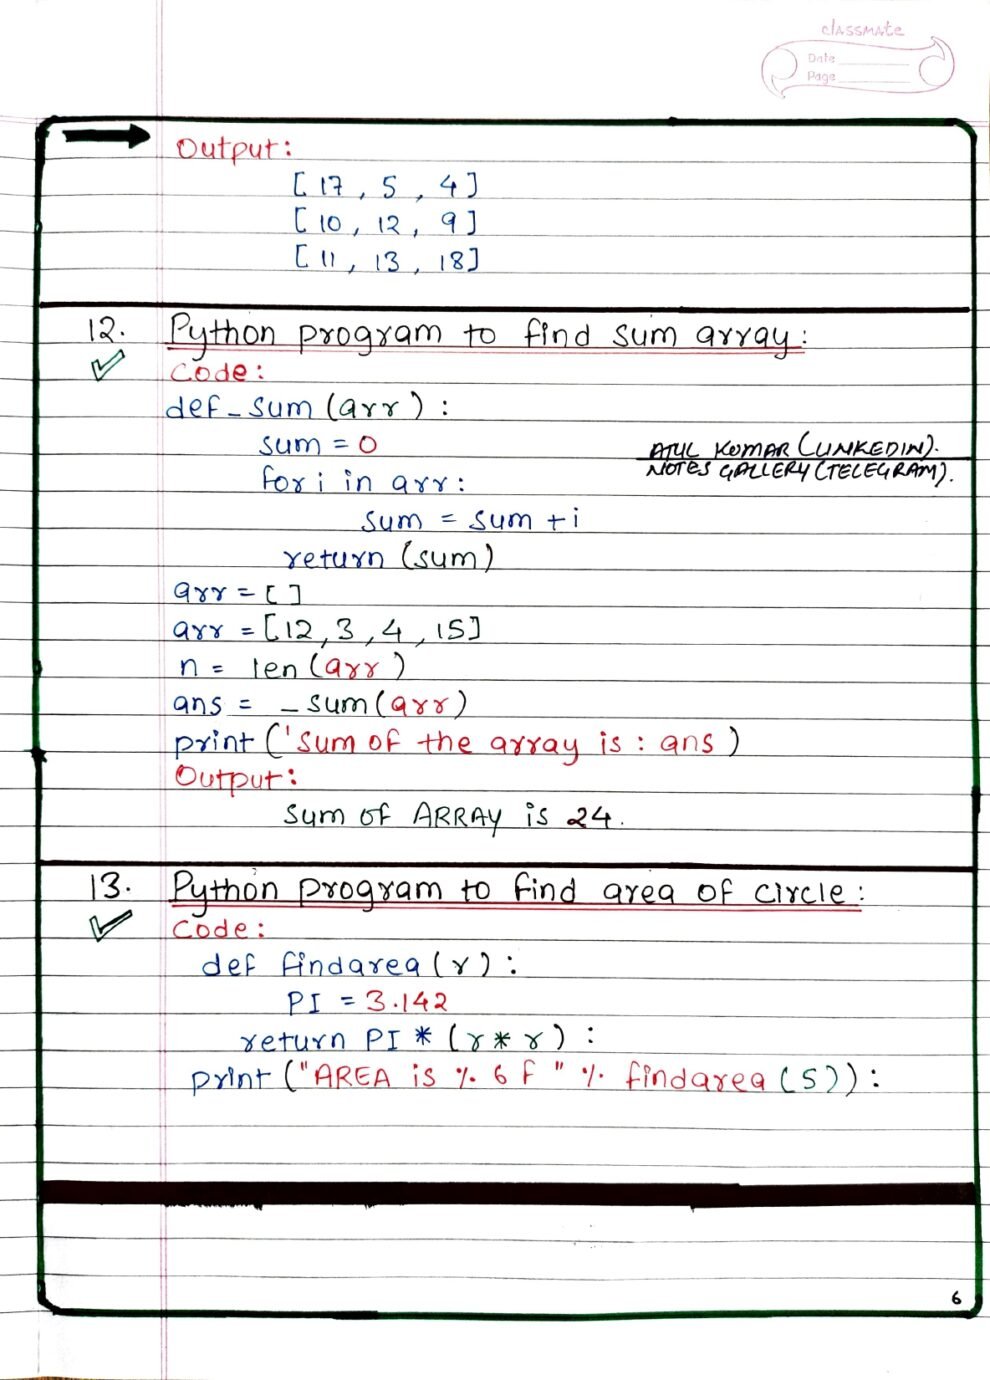 classmate
Date
Page
Output:
[17, 5, 4]
[10, 12, 9]
[11, 13, 18]
12. Python program to find sum array:
Code:
def_sum(arr):
sum = 0
for i in arr:
sum = sum + i
return (sum)
arr = [ ]
arr = [12, 3, 4, 15]
n = len(arr)
ans = _sum(arr)
print('sum of the array is : ans)
Output:
Sum of ARRAY is 24.
ATUL KUMAR (LINKEDIN).
NOTES GALLERY (TELEGRAM).
13. Python program to find area of circle:
Code:
def findarea(r):
PI = 3.142
return PI * (r * r):
print("AREA is %.6f" % findarea(5)):
6